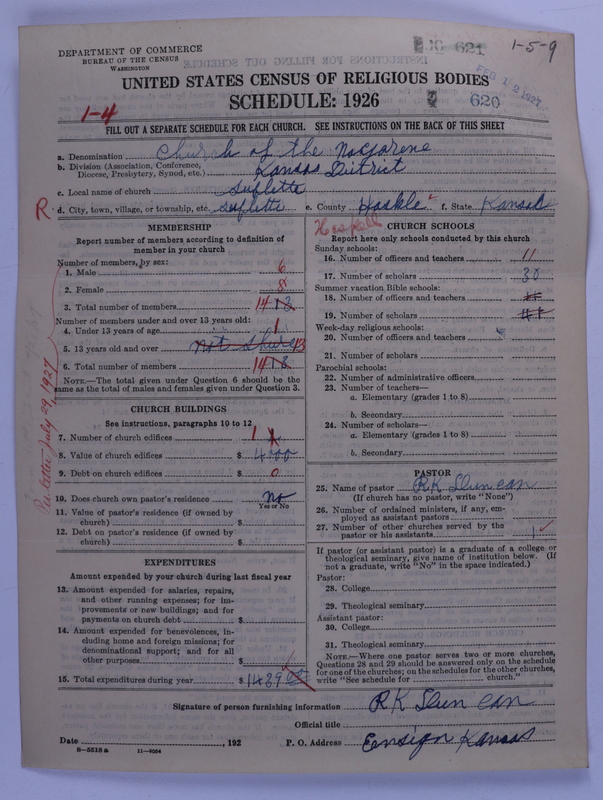 DEPARTMENT OF COMMERCE
BUREAU OF THE CENSUS
WASHINGTON
621
1-5-9
FEB 12 1927
UNITED STATES CENSUS OF RELIGIOUS BODIES
SCHEDULE: 1926
620
1-4
FILL OUT A SEPARATE SCHEDULE FOR EACH CHURCH. SEE INSTRUCTIONS ON THE BACK OF THIS SHEET
a. Denomination Church of the Nazarene
b. Division (Association, Conference, Diocese, Presbytery, Synod, etc.) Kansas District
c. Local name of church Suplette
R d. City, town, village, or township, etc. Suplette e. County Haskle f. State Kansas
Haskell
Per letter July 29, 1927
MEMBERSHIP
Report number of members according to definition of
member in your church
Number of members, by sex:
1. Male 6
2. Female 8
3. Total number of members 14
Number of members under and over 13 years old:
4. Under 13 years of age 1
5. 13 years old and over not shure 13
6. Total number of members 14
NOTE.—The total given under Question 6 should be the
same as the total of males and females given under Question 3.
CHURCH BUILDINGS
See instructions, paragraphs 10 to 12
7. Number of church edifices 1
8. Value of church edifices $ 4000
9. Debt on church edifices $ 0
10. Does church own pastor's residence no
Yes or No
11. Value of pastor's residence (if owned by
church) $
12. Debt on pastor's residence (if owned by
church) $
EXPENDITURES
Amount expended by your church during last fiscal year
13. Amount expended for salaries, repairs,
and other running expenses; for im-
provements or new buildings; and for
payments on church debt $
14. Amount expended for benevolences, in-
cluding home and foreign missions; for
denominational support; and for all
other purposes $
15. Total expenditures during year $ 1489.00
CHURCH SCHOOLS
Report here only schools conducted by this church
Sunday schools:
16. Number of officers and teachers 11
17. Number of scholars 30
Summer vacation Bible schools:
18. Number of officers and teachers
19. Number of scholars
Week-day religious schools:
20. Number of officers and teachers
21. Number of scholars
Parochial schools:
22. Number of administrative officers
23. Number of teachers—
a. Elementary (grades 1 to 8)
b. Secondary
24. Number of scholars—
a. Elementary (grades 1 to 8)
b. Secondary
PASTOR
25. Name of pastor RK Duncan
(If church has no pastor, write "None")
26. Number of ordained ministers, if any, em-
ployed as assistant pastors
27. Number of other churches served by the
pastor or his assistants 1
If pastor (or assistant pastor) is a graduate of a college or
theological seminary, give name of institution below. (If
not a graduate, write "No" in the space indicated.)
Pastor:
28. College
29. Theological seminary
Assistant pastor:
30. College
31. Theological seminary
NOTE.—Where one pastor serves two or more churches,
Questions 28 and 29 should be answered only on the schedule
for one of the churches; on the schedules for the other churches,
write "See schedule for church."
Signature of person furnishing information RK Duncan
Official title
Date , 192 P. O. Address Ensign Kansas
8-5518 a 11-9054